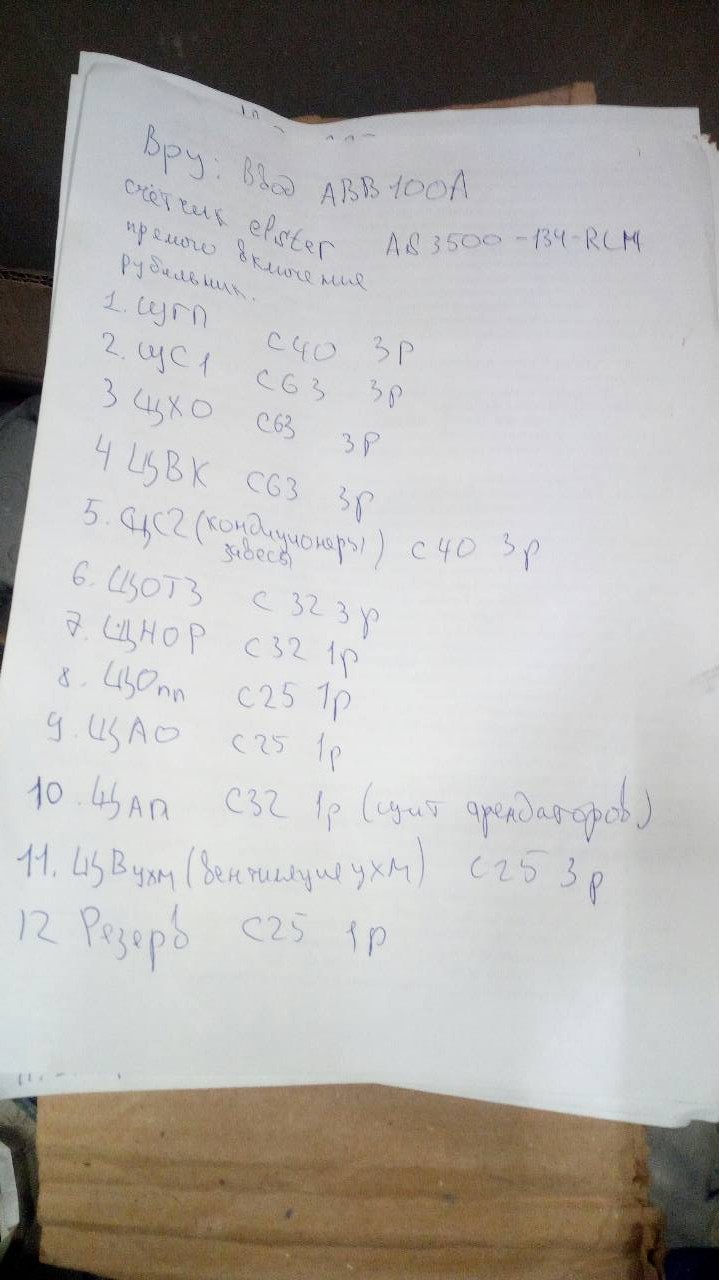 Вру: Ввод ABB 100A
счётчик elster AS3500-134-RLM
прямого включения
рубильник.
1. ЩГП С40 3р
2. ЩС1 С63 3р
3 ЩХО С63 3р
4 ЩВК С63 3р
5. ЩС2 (кондиционеры завесы) С40 3р
6. ЩОТЗ С32 3р
7. ЩНОР С32 1р
8. ЩОпп С25 1р
9. ЩАО С25 1р
10. ЩАП С32 1р (щит арендаторов)
11. ЩВухм (вентиляция ухм) С25 3р
12 Резерв С25 1р